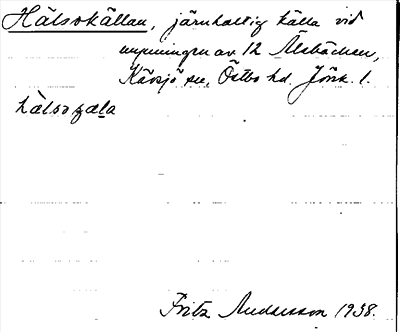 Hälsokällan, järnhaltig källa vid
mynningen av 12 Älsbäcken,
Kävsjö sn, Östbo hd. Jönk. l.
hälsoɕæla
Fritz Andersson 1938.